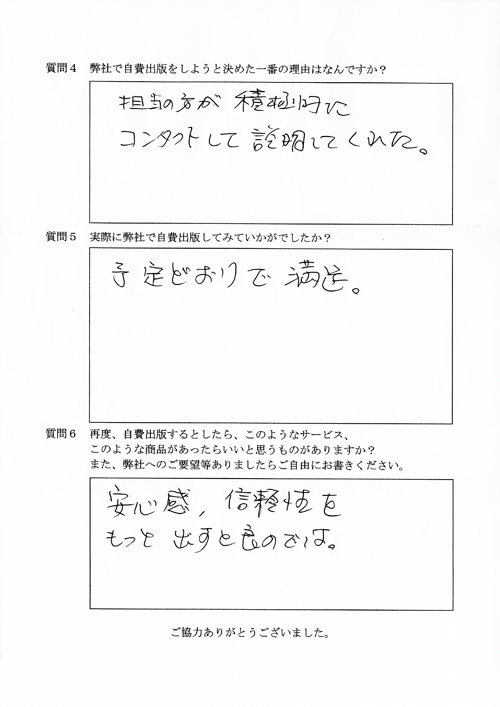 質問４ 弊社で自費出版をしようと決めた一番の理由はなんですか？
担当の方が 積極的に
コンタクトして説明してくれた。
質問５ 実際に弊社で自費出版してみていかがでしたか？
予定どおりで満足。
質問６ 再度、自費出版するとしたら、このようなサービス、
このような商品があったらいいと思うものがありますか？
また、弊社へのご要望等ありましたらご自由にお書きください。
安心感，信頼性を
もっと出すと良のでは。
ご協力ありがとうございました。